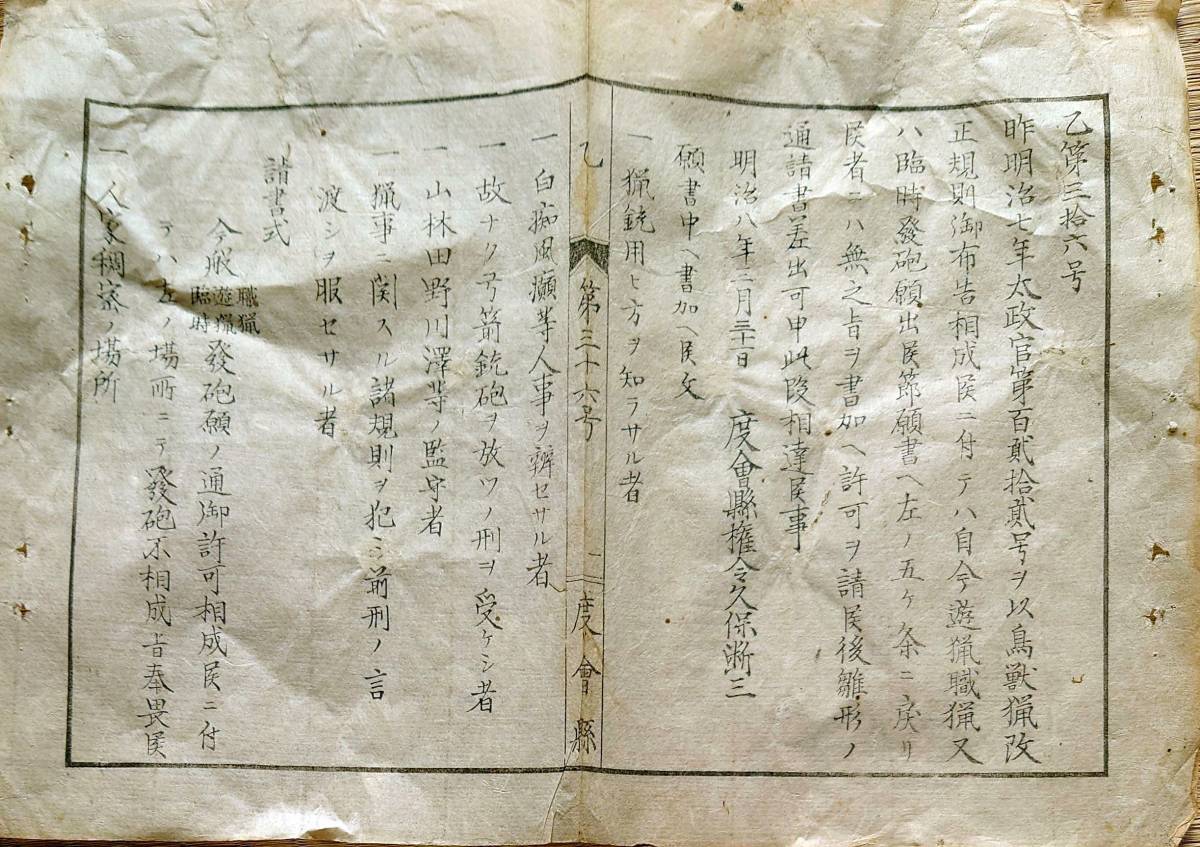 乙第三拾六号
昨明治七年太政官第百貳拾貳号ヲ以鳥獣猟改
正規則御布告相成候ニ付テハ自今遊猟職猟又
ハ臨時發砲願出候節願書ヘ左ノ五ケ条ニ戻リ
候者ニハ無之旨ヲ書加ヘ許可ヲ請候後雛形ノ
通請書差出可申此段相達候事
明治八年三月三十一日 度會縣権令久保断三
願書中ヘ書加ヘ候文
一 猟銃用ヒ方ヲ知ラサル者
乙 第三十六号 一 度會縣
一 白痴風癲等人事ヲ辨セサル者
一 故ナク弓箭銃砲ヲ放ツノ刑ヲ受ケシ者
一 山林田野川澤等ノ監守者
一 猟事ニ関スル諸規則ヲ犯シ前刑ノ言
渡シヲ服セサル者
請書式
今般職猟遊猟臨時發砲願ノ通御許可相成候ニ付
テハ左ノ場所ニテ發砲不相成旨奉畏候
一 人家稠密ノ場所